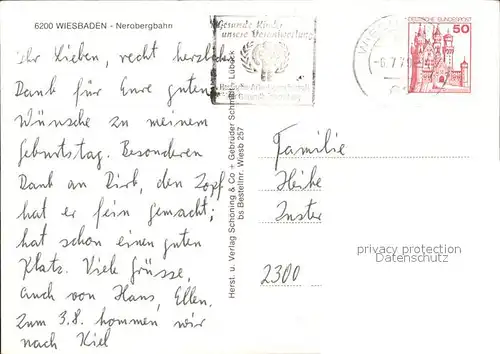 6200 WIESBADEN - Nerobergbahn
Ihr Lieben, recht herzlichen
Dank für Eure guten
Wünsche zu meinem
Geburtstag. Besonderen
Dank an Dirk, den Zopf
hat er fein gemacht;
hat schon einen guten
Platz. Viele Grüsse,
auch von Hans, Ellen.
Zum 3.8. kommen wir
nach Kiel
Herst. u. Verlag Schöning & Co + Gebrüder Schmidt, Lübeck
bs Bestellnr. Wiesb 257
Gesunde Kinder
unsere Verantwortung
DEUTSCHE BUNDESPOST
50
Familie
Heike
Inster
2300
privacy protection
Datenschutz